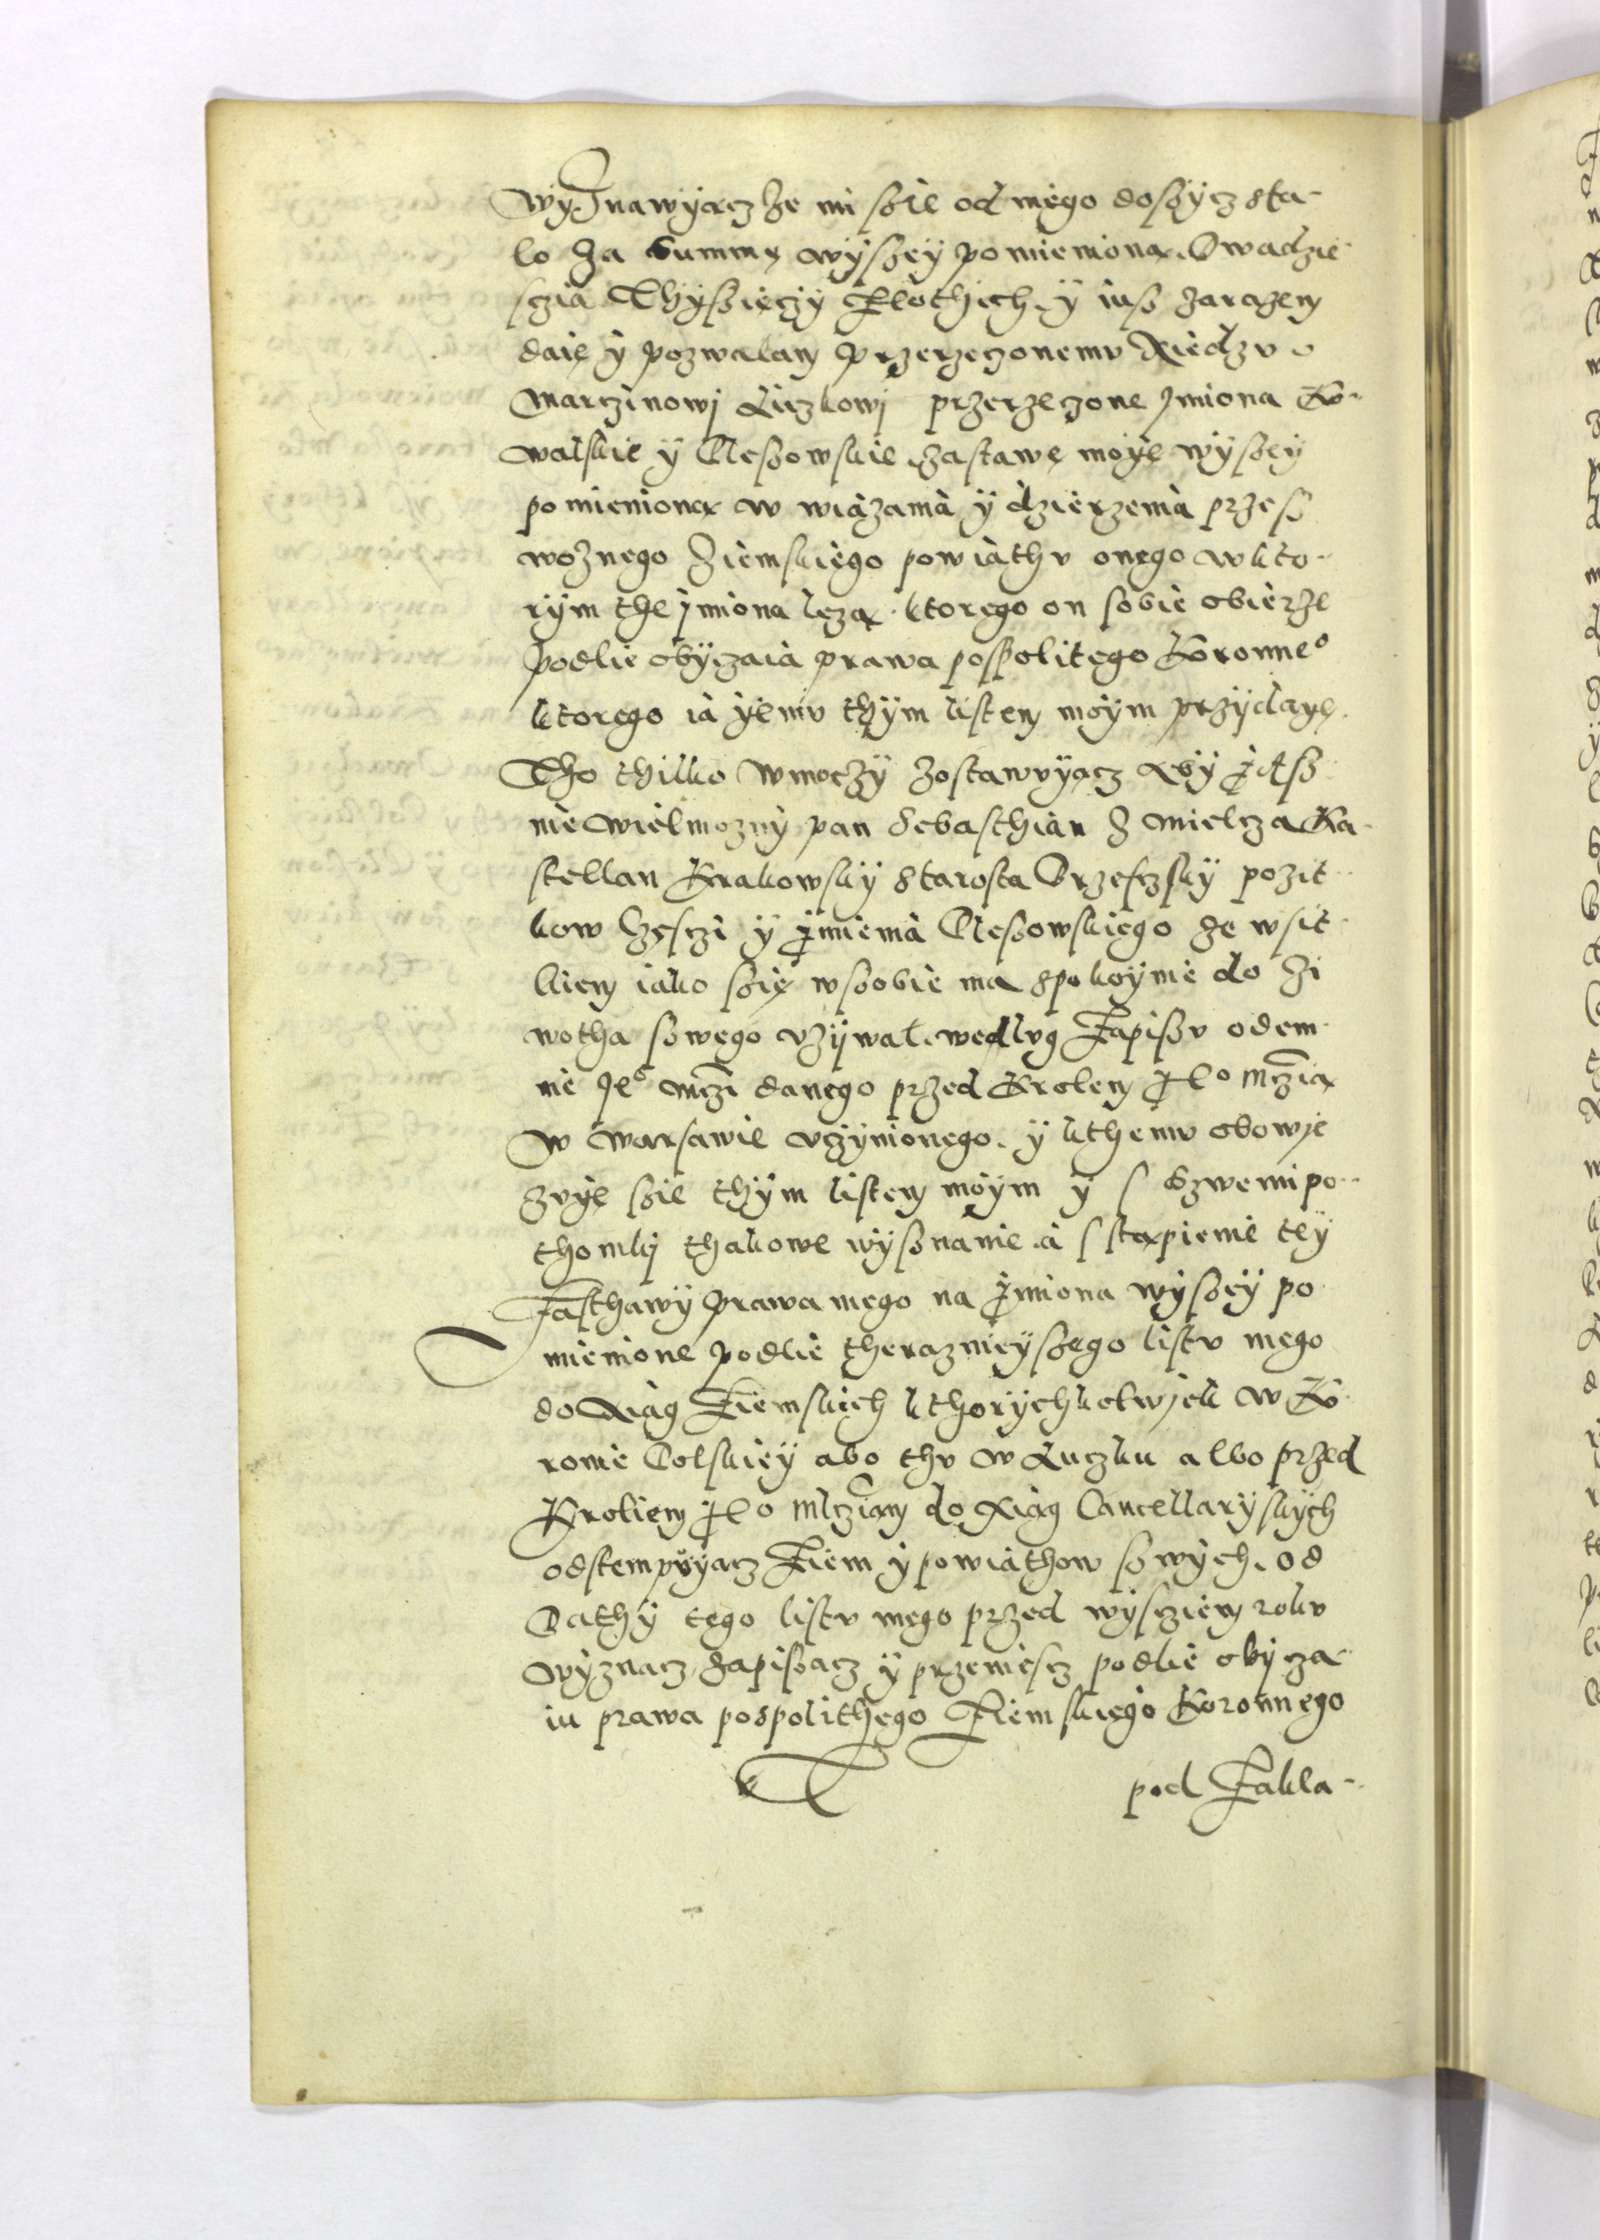 Wyznawyącz ze mi sßie od niego dosßycz sta-
lo za Summę wyssey pomieniona. Dwadzie
sczia Thysßięczy Zlothich. y iusß zarazem
daię y pozwalam przerzeczonemv Xiedzv
Marczinowj Liczkowj przerzeczone Jmiona Ko-
walskie y Olesßowskie zastawę moye wyssey
pomieniona w wiązania y dzierzenia przesß
woznego Ziemskiego powiathv onego w kto-
rym the jmiona leza. ktorego on sobie obierze
podlie obyczaia prawa pospolitego Koronne°
ktorego ia yemv thym listem moym przydaye.
Tho thilko wmoczy zostawvyącz Aby J Asß
nie wielmozny pan Sebasthian z Mielcza Ka-
stellan Krakowsky Starosta Brzesczsky pozit
kow Częsczi y jmienia Olesßowskiego ze wsit
kiem iako sßię wsßobie ma spokoynie do zi
wotha sßwego vzywal. wedlvg Zapisßv odem
nie Je° Mczi danego przed Krolem J° Mczia
w Warsawie vczynionego. y kthemv obowie
zvye sßie thym listem moym y s Dzwemi po-
thomkj thakowe wysßnanie a sstąpienie tey
Zasthawy prawa mego na jmiona wyssey po
mienione podlie theraznieyssego listv mego
do Xiąg Ziemskich kthorychkolwjek w Ko
ronie Polskiey abo thv w Luczku albo przed
Kroliem J° Mczią do Xiąg Cancellaryskych
odstempvyącz Ziem y powiathow sßwych. od
Dathy tego listv mego przed wysczięm rokv
wyznacz zapisßacz y przeniescz podlie obycza-
iu prawa pospolithego Ziemskiego Koronnego
pod Zakla-